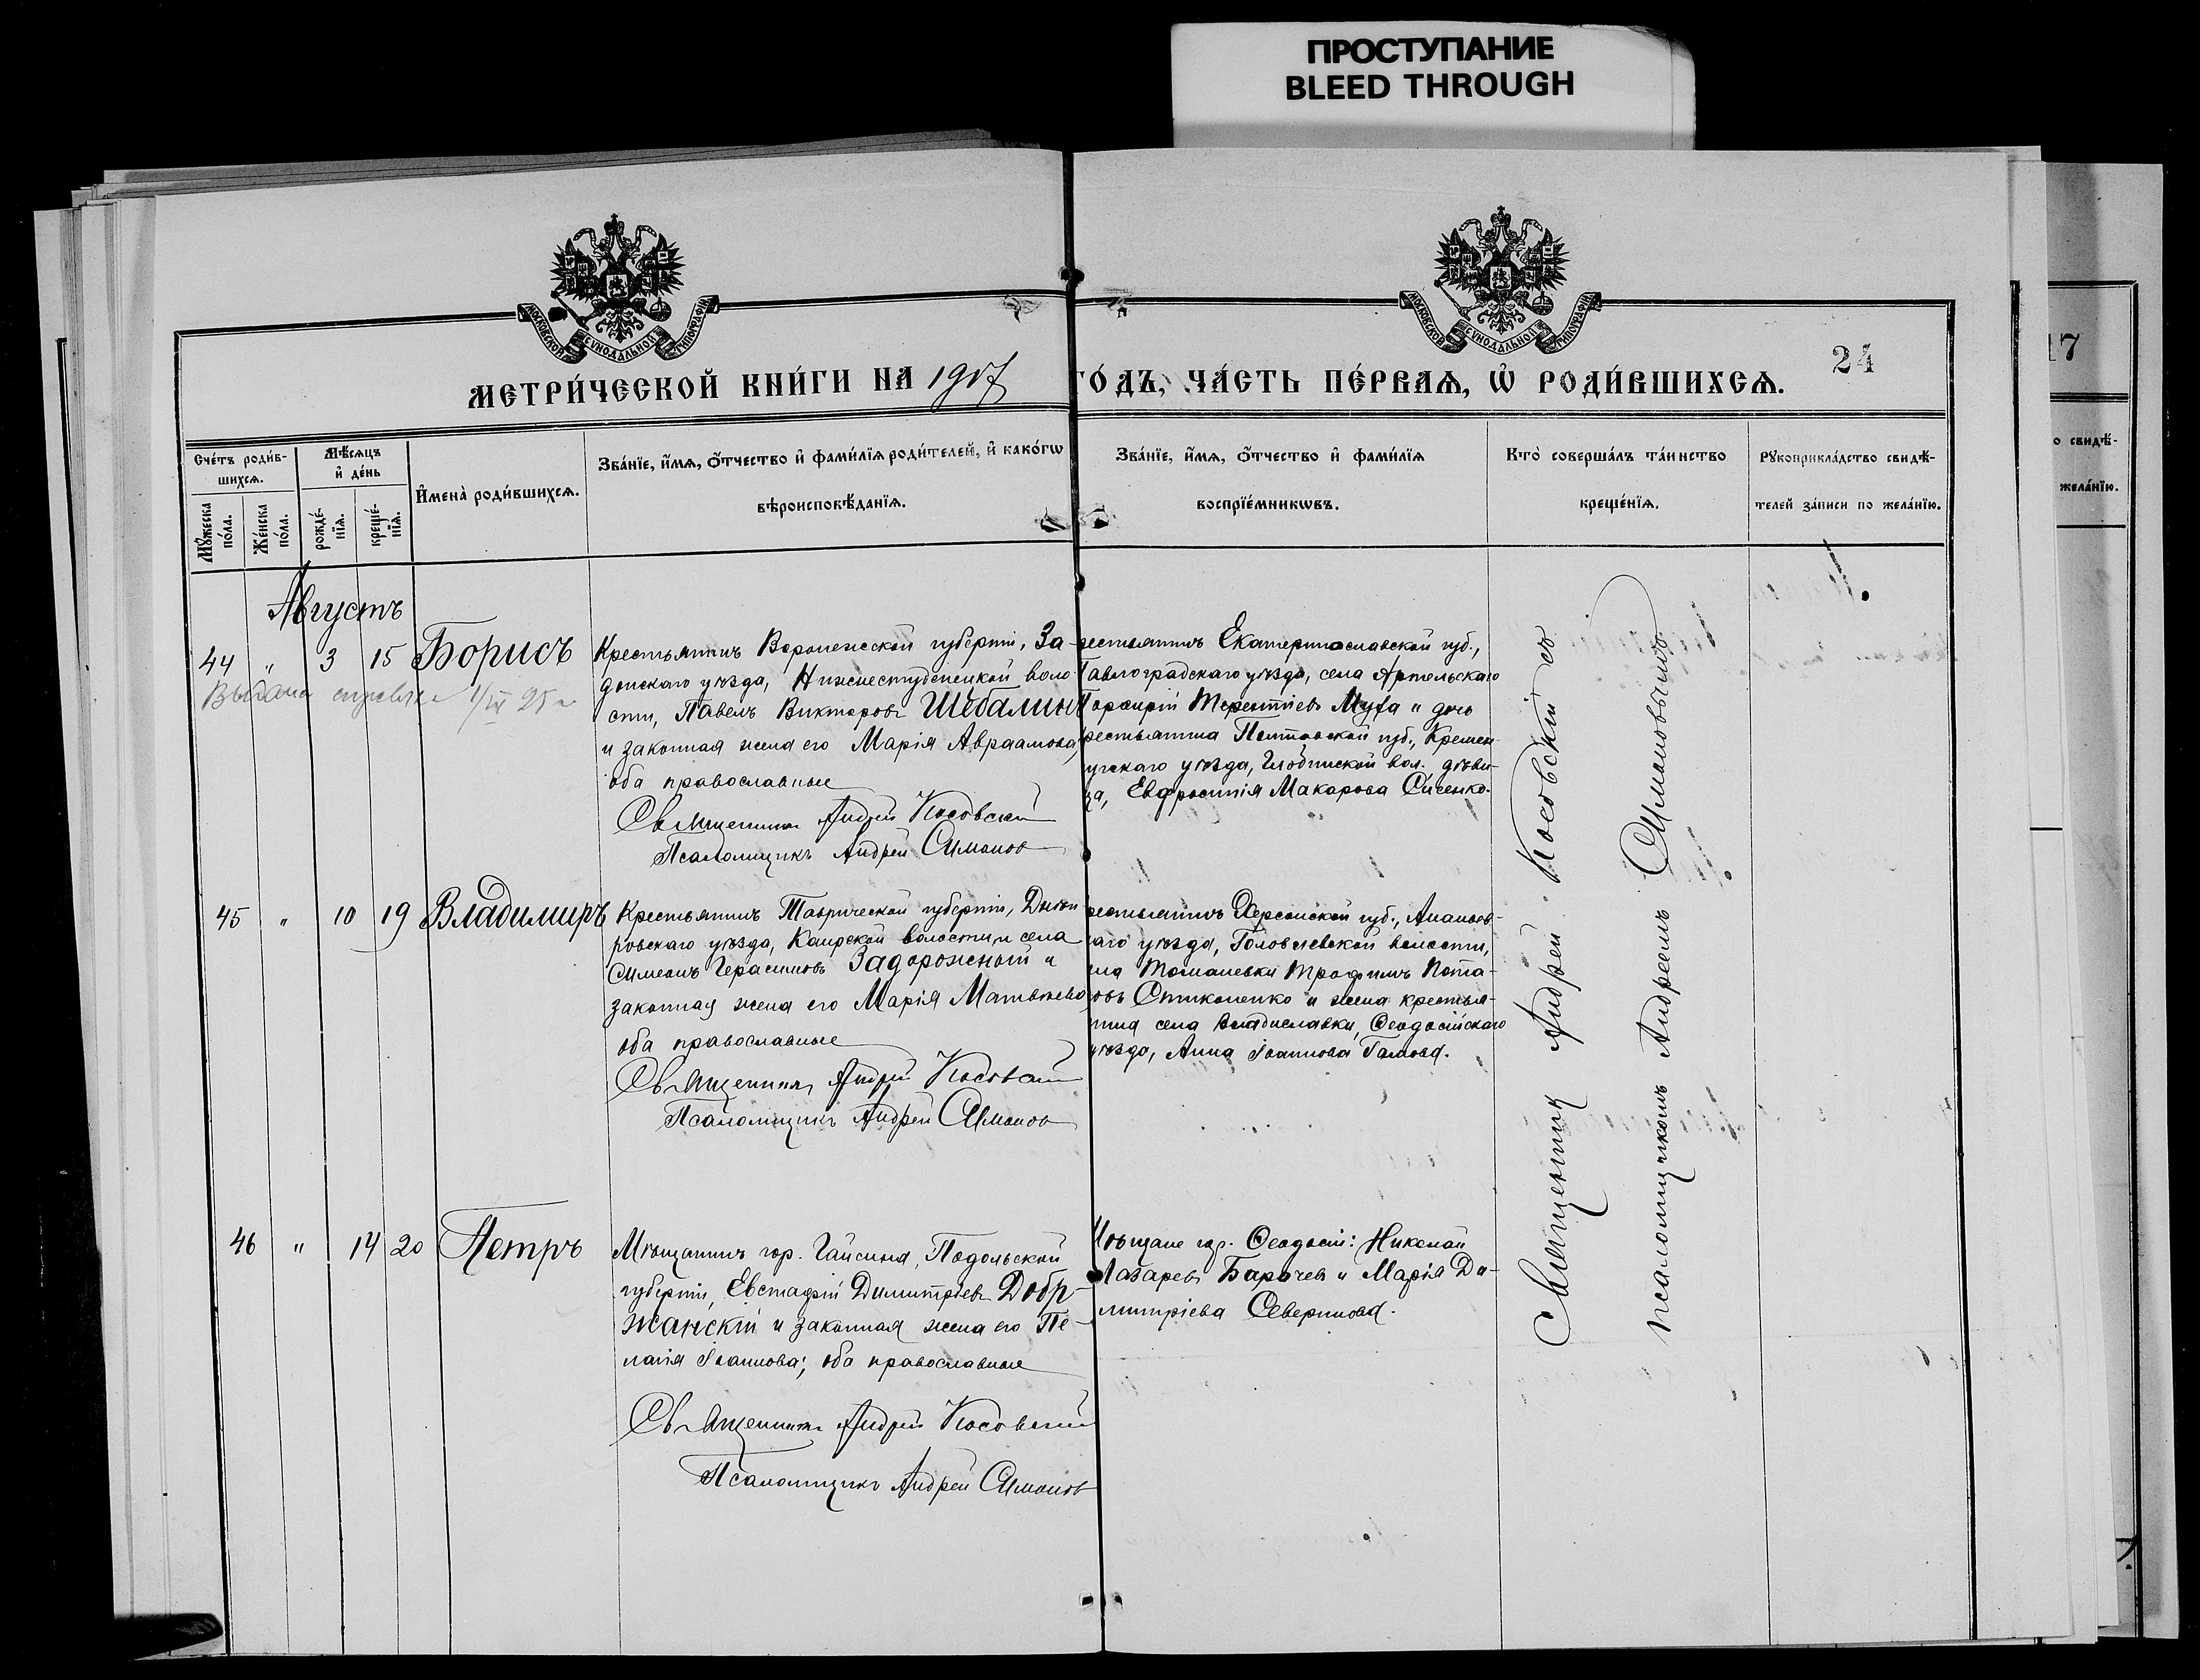 ПРОСТУПАНИЕ
BLEED THROUGH
МОСКОВСКОЙ СѴНОДАЛЬНОЙ ТИПОГРАФІИ
МОСКОВСКОЙ СѴНОДАЛЬНОЙ ТИПОГРАФІИ
24
17
МЕТРИ́ЧЕСКОЙ КНИ́ГИ НА 1907
ГО́ДЪ, ЧА́СТЬ ПЕ́РВАЯ, Ѡ҆ РОДИ́ВШИХСЯ.
Сче́тъ роди́в-
шихся.
Мѣ́сяцъ
и҆ де́нь
Мꙋ́жеска
по́ла.
Же́нска
по́ла.
рожде́-
нїя.
креще́-
нїя.
И҆мена̀ роди́вшихся.
Зва́нїе, и҆́мя, ѻ҆́тчество и҆ фами́лїя роди́телей, и҆ како́гѡ
вѣроисповѣ́данїя.
Зва́нїе, и҆́мя, ѻ҆́тчество и҆ фами́лїя
воспрїе́мникѡвъ.
Кто̀ соверша́лъ та́инство
креще́нїя.
Рꙋкоприкла́дство свидѣ́-
телей за́писи по жела́нїю.
о свидѣ́-
жела́нїю.
Августъ
44 " 3 15 Борисъ
Выдана справка 1/IX 25 г
Крестьянинъ Воронежской губерніи, За-
донскаго уѣзда, Нижнестуденецкой воло-
сти, Павелъ Викторовъ Шебалинъ
и законная жена его Марія Авраамова,
оба православные
Священникъ Андрей Косовскій
Псаломщикъ Андрей Симонов
рестьянинъ Екатеринославской губ.,
Павлоградскаго уѣзда, села Артельскаго
Порфирій Терентіевъ Муха и дочь
рестьянина Полтавской губ., Кремен-
угскаго уѣзда, Глобинской вол. дѣви-
ца, Евфросинія Макарова Сиченко.
45 " 10 19 Владимиръ
Крестьянинъ Таврической губерніи, Днѣп-
ровскаго уѣзда, Каирской волости и села
Симеонъ Герасимовъ Задорожный и
законная жена его Марія Матвѣева,
оба православные
Священникъ Андрей Косовскій
Псаломщикъ Андрей Симонов
рестьянинъ Херсонской губ., Ананьев-
каго уѣзда, Головлевской волости,
ела Томашевки Трофимъ Пота-
повъ Стиконенко и жена крестья-
нина села Владиславки, Ѳеодосійскаго
уѣзда, Анна Іоаннова Гамова.
46 " 14 20 Петръ
Мѣщанинъ гор. Гайсина, Подольской
губерніи, Евстафій Димитріевъ Добр-
жанскій и законная жена его Пе-
лагія Іоаннова; оба православные
Священникъ Андрей Косовскій
Псаломщикъ Андрей Симонов
Мѣщане гор. Ѳеодосіи: Николай
Лазаревъ Барачев и Марія Ди-
митріева Северинова.
Священникъ Андрей Косовскій съ
псаломщикомъ Андреемъ Симоновымъ.